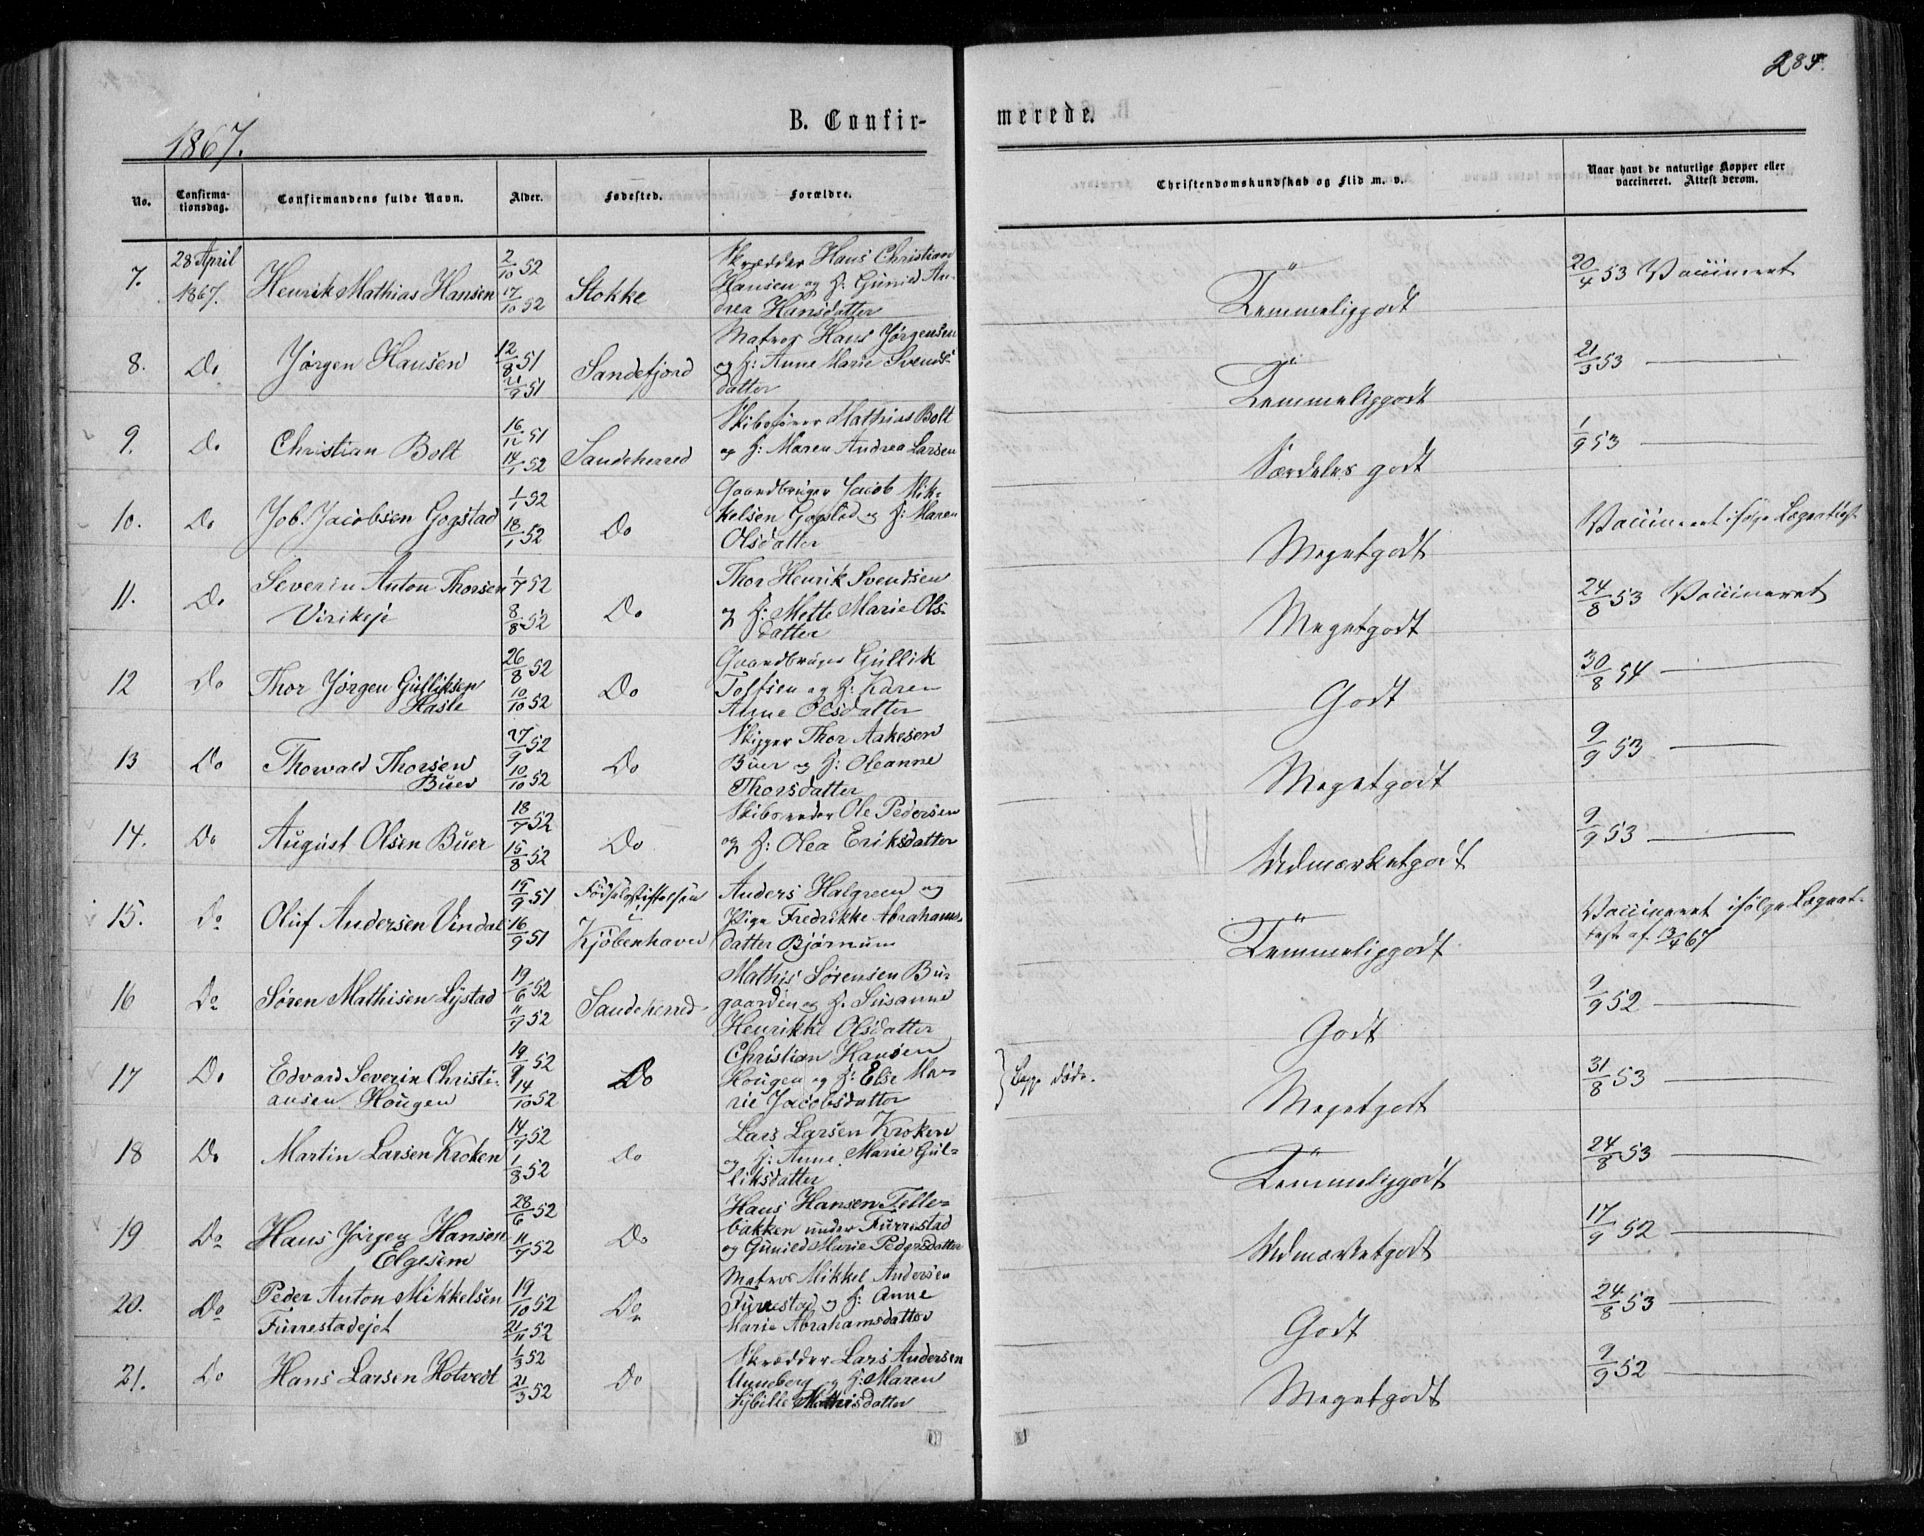 284.
1867.
B. Confirmerede.
No. Confirmationsdag. Confirmandens fulde Navn. Alder. Fødested. Forældre. Christendomskundskab og Flid m. v. Naar havt de naturlige Kopper eller vaccineret. Attest derom.
7. 28 April 1867. Henrik Mathias Hansen 2/10 52 17/10 52 Stokke Skrædder Hans Christian Hansen og H: Gunild Andrea Hansdatter Temmeliggodt 20/4 53 Vaccineret
8. Do Jørgen Hansen 12/8 51 21/9 51 Sandefjord Matros Hans Jørgensen og H: Anne Marie Svendsdatter Temmeliggodt 21/3 53 —
9. Do Christian Bolt 16/12 51 14/1 52 Sandeherred Skibsfører Mathias Bolt og H: Maren Andrea Larsen Særdeles godt 1/9 53 —
10. Do Job. Jacobsen Gogstad 1/1 52 18/1 52 Do Gaardbruger Jacob Mikkelsen Gogstad og H: Maren Olsdatter Megetgodt Vaccineret ifølge Lægeattest
11. Do Severin Anton Thorsen Virikeje 1/7 52 8/8 52 Do Thor Henrik Svendsen og H: Mette Marie Olsdatter Megetgodt 24/8 53 Vaccineret
12 Do Thor Jørgen Gulliksen Hasle 26/8 52 10/10 52 Do Gaardbruger Gullik Tolfsen og H: Karen Anne Olsdatter Godt 30/8 54 —
13 Do Thorvald Thorsen Buer 27/9 52 10/10 52 Do Skipper Thor Aakesen Buer og H: Oleanne Thorsdatter Megetgodt 9/9 53 —
14. Do August Olsen Buer 18/7 52 15/8 52 Do Skibsreder Ole Pedersen og H: Olea Eriksdatter Udmærketgodt 9/9 53 —
15. Do Oluf Andersen Vindal 15/9 51 16/9 51 Fødselsstiftelsen Kjøbenhavn Anders Halgreen og Pige Fredrikke Abrahamsdatter Bjørnum Temmeliggodt Vaccineret ifølge Lægeattest af 13/4 67
16 Do Søren Mathisen Lystad 19/6 52 11/7 52 Sandeherred Mathis Sørensen Bugaarden og H: Susanne Henrikke Olsdatter Godt 9/9 52 —
17 Do Edvard Severin Christiansen Hougen 19/9 52 14/10 52 Do Christian Hansen Hougen og H: Else Marie Jacobsdatter } Begge døde. Megetgodt 31/8 53 —
18 Do Martin Larsen Kroken 14/7 52 1/8 52 Do Lars Larsen Kroken og H: Anne Marie Gulliksdatter Temmeliggodt 24/8 53 —
19 Do Hans Jørgen Hansen Elgesem 28/6 52 11/7 52 Do Hans Hansen Tellebakken under Furrestad og Gunild Marie Pedersdatter Udmærketgodt 17/9 52 —
20. Do Peder Anton Mikkelsen Furrestadejet 19/10 52 21/11 52 Do Matros Mikkel Andersen Furrestad og H: Anne Marie Abrahamsdatter Godt 24/8 53 —
21. Do Hans Larsen Hotvedt 1/3 52 21/3 52 Do Skrædder Lars Andersen Unneberg og H: Maren Sybille Mathisdatter Megetgodt 9/9 52 —